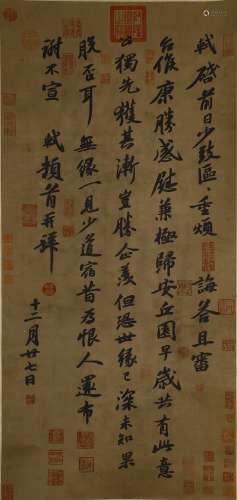 軾啟前日少致區、重煩 誨答且審
台候康勝感慰兼極歸安丘園早歲共有此意
公獨先獲其漸豈勝企羨但恐世緣已深未知果
脫否耳無緣一見少道宿昔為恨人還布
謝不宣 軾頓首再拜
十二月廿七日